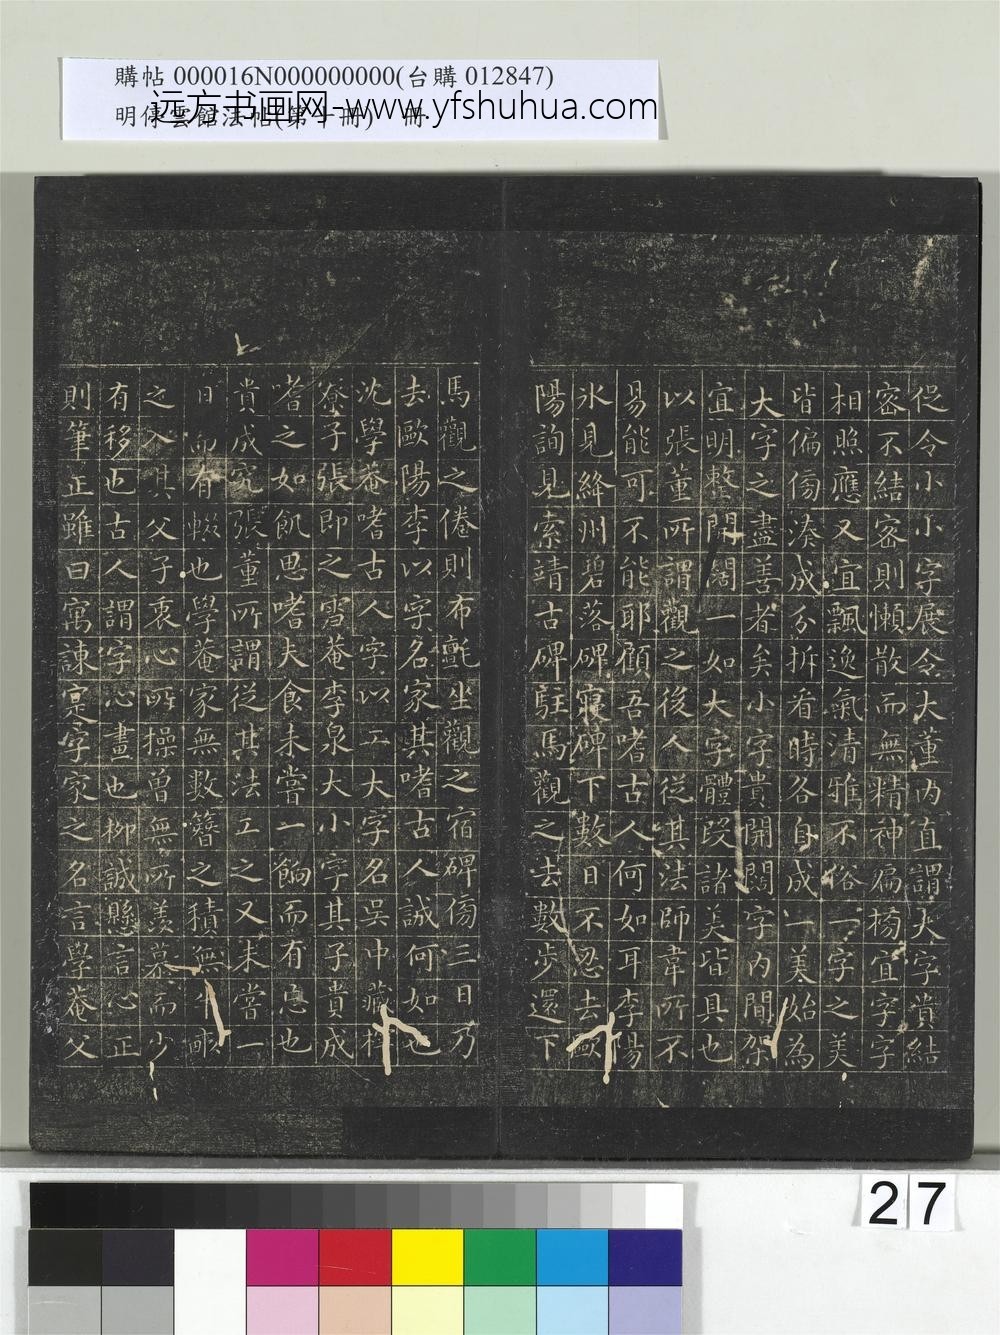 購帖 000016N000000000(台購 012847)
明停雲館法帖(第十冊) 冊
远方书画网-www.yfshuhua.com
促令小小字展令大董内直謂大字賞結
密不結密則懶散而無精神匾榜宜字字
相照應又宜飄逸氣清雅不俗一字之美
皆偏傍湊成分拆看時各自成一美始為
大字之盡善者矣小字貴開闊字内間架
宜明整開闊一如大字體段諸美皆具也
以張董所謂觀之後人從其法師韋所不
易能可不能耶顧吾嗜古人何如耳李陽
氷見絳州碧落碑寢碑下數日不忍去歐
陽詢見索靖古碑駐馬觀之去數步還下
馬觀之倦則布氈坐觀之宿碑傍三日乃
去歐陽李以字名家其嗜古人誠何如也
沈學菴嗜古人字以工大字名吳中藏
寮子張即之雪菴李泉大小字其子貴成
嗜之如飢思嗜夫食未嘗一餉而有怠也
貴成究張董所謂從其法工之又未嘗一
日而有輟也學菴家無數簪之積無半畝
之入其父子衷心所操曾無所羡慕而少
有移也古人謂字心畫也柳誠懸言心正
則筆正雖曰寓諫寔字家之名言學菴父
27